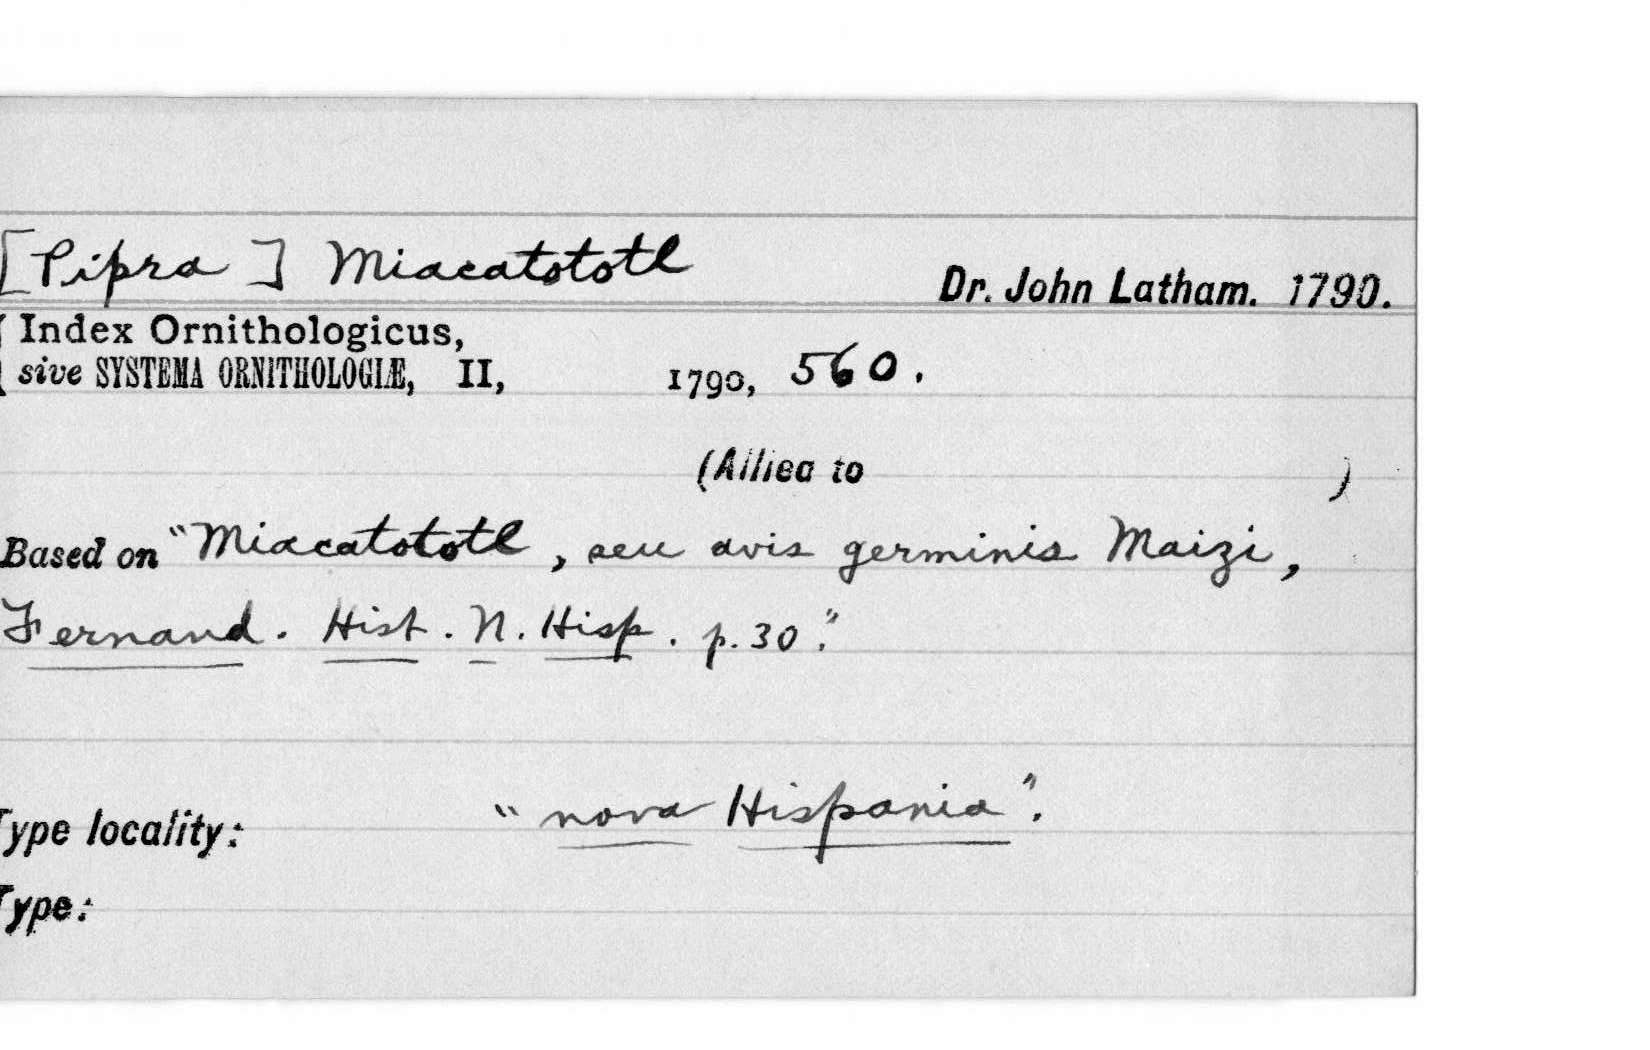 [Pipra] Miacatototl Dr. John Latham. 1790.
Index Ornithologicus,
sive SYSTEMA ORNITHOLOGIÆ, II, 1790, 560.
(Allied to )
Based on "Miacatototl, seu avis germinis Maizi,
Fernand. Hist. N. Hisp. p. 30."
Type locality: "nova Hispania".
Type: